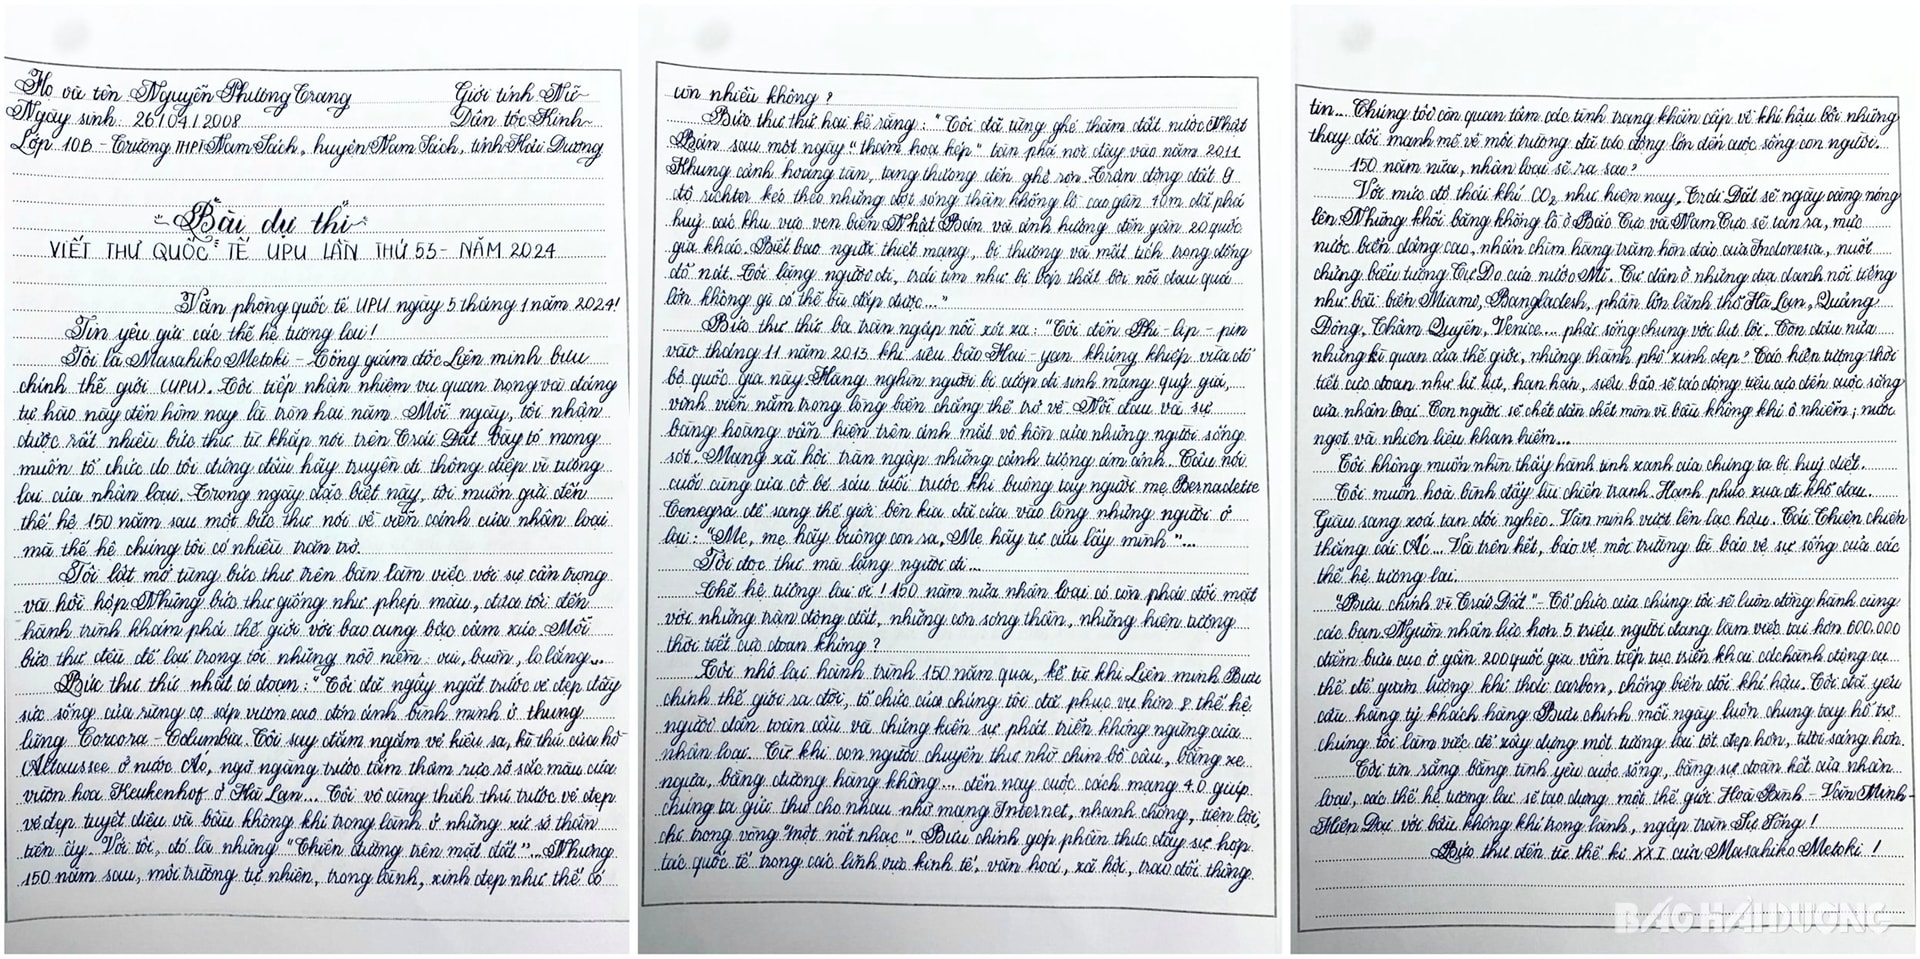 Họ và tên: Nguyễn Phương Trang Giới tính: Nữ
Ngày sinh: 26/04/2008 Dân tộc: Kinh
Lớp 10B - Trường THPT Nam Sách, huyện Nam Sách, tỉnh Hải Dương
Bài dự thi
VIẾT THƯ QUỐC TẾ UPU LẦN THỨ 53 - NĂM 2024
Văn phòng quốc tế UPU ngày 5 tháng 1 năm 2024!
Tin yêu gửi các thế hệ tương lai!
Tôi là Masahiko Metoki - Tổng giám đốc Liên minh bưu
chính thế giới (UPU). Tôi tiếp nhận nhiệm vụ quan trọng và đáng
tự hào này đến hôm nay là tròn hai năm. Mỗi ngày, tôi nhận
được rất nhiều bức thư từ khắp nơi trên Trái Đất bày tỏ mong
muốn tổ chức do tôi đứng đầu hãy truyền đi thông điệp vì tương
lai của nhân loại. Trong ngày đặc biệt này, tôi muốn gửi đến
thế hệ 150 năm sau một bức thư nói về viễn cảnh của nhân loại
mà thế hệ chúng tôi có nhiều trăn trở.
Tôi lật mở từng bức thư trên bàn làm việc với sự cẩn trọng
và hồi hộp. Những bức thư giống như phép màu, đưa tôi đến
hành trình khám phá thế giới với bao cung bậc cảm xúc. Mỗi
bức thư đều để lại trong tôi những nỗi niềm: vui, buồn, lo lắng...
Bức thư thứ nhất có đoạn: "Tôi đã ngây ngất trước vẻ đẹp đầy
sức sống của rừng cọ sáp vươn cao đón ánh bình minh ở thung
lũng Corcora - Columbia. Tôi say đắm ngắm vẻ kiêu sa, kì thú của hồ
Altaussee ở nước Áo, ngỡ ngàng trước tấm thảm rực rỡ sắc màu của
vườn hoa Keukenhof ở Hà Lan... Tôi vô cùng thích thú trước vẻ đẹp
vẻ đẹp tuyệt diệu và bầu không khí trong lành ở những xứ sở thần
tiên ấy. Với tôi, đó là những "Thiên đường trên mặt đất"... Nhưng
150 năm sau, môi trường tự nhiên, trong lành, xinh đẹp như thế có
còn nhiều không?
Bức thư thứ hai kể rằng: "Tôi đã từng ghé thăm đất nước Nhật
Bản sau một ngày "thảm hoạ kép" tàn phá nơi đây vào năm 2011
Khung cảnh hoang tàn, tang thương đến ghê rợn. Trận động đất 9
độ richter kéo theo những đợt sóng thần khổng lồ cao gần 10m đã phá
huỷ các khu vực ven biển Nhật Bản và ảnh hưởng đến gần 20 quốc
gia khác. Biết bao người thiệt mạng, bị thương và mất tích trong đống
đổ nát. Tôi lặng người đi, trái tim như bị bóp thắt bởi nỗi đau quá
lớn không gì có thể bù đắp được..."
Bức thư thứ ba tràn ngập nỗi xót xa: "Tôi đến Phi - lip - pin
vào tháng 11 năm 2013 khi siêu bão Hai - yan khủng khiếp vừa đổ
bộ quốc gia này. Hàng nghìn người bị cướp đi sinh mạng quý giá,
vĩnh viễn nằm trong lòng biển chẳng thể trở về. Nỗi đau và sự
bàng hoàng vẫn hiện trên ánh mắt vô hồn của những người sống
sót. Mạng xã hội tràn ngập những cảnh tượng ám ảnh. Câu nói
cuối cùng của cô bé sáu tuổi trước khi buông tay người mẹ Bernadette
Tenegra để sang thế giới bên kia đã cứa vào lòng những người ở
lại: "Mẹ, mẹ hãy buông con ra, Mẹ hãy tự cứu lấy mình"...
Tôi đọc thư mà lặng người đi...
Thế hệ tương lai ơi! 150 năm nữa nhân loại có còn phải đối mặt
với những trận động đất, những cơn sóng thần, những hiện tượng
thời tiết cực đoan không?
Tôi nhớ lại hành trình 150 năm qua, kể từ khi Liên minh Bưu
chính thế giới ra đời, tổ chức của chúng tôi đã phục vụ hơn 8 thế hệ
người dân toàn cầu và chứng kiến sự phát triển không ngừng của
nhân loại. Từ khi con người chuyển thư nhờ chim bồ câu, bằng xe
ngựa, bằng đường hàng không... đến nay cuộc cách mạng 4.0 giúp
chúng ta gửi thư cho nhau nhờ mạng Internet, nhanh chóng, tiện lợi,
chỉ trong vòng "một nốt nhạc". Bưu chính góp phần thúc đẩy sự hợp
tác quốc tế trong các lĩnh vực kinh tế, văn hoá, xã hội, trao đổi thông
tin... Chúng tôi còn quan tâm các tình trạng khẩn cấp về khí hậu bởi những
thay đổi mạnh mẽ về môi trường đã tác động lớn đến cuộc sống con người.
150 năm nữa, nhân loại sẽ ra sao?
Với mức độ thải khí CO₂ như hiện nay, Trái Đất sẽ ngày càng nóng
lên. Những khối băng khổng lồ ở Bắc Cực và Nam Cực sẽ tan ra, mực
nước biển dâng cao, nhấn chìm hàng trăm hòn đảo của Indonesia, nuốt
chửng biểu tượng Tự Do của nước Mĩ. Cư dân ở những địa danh nổi tiếng
như bãi biển Miami, Bangladesh, phần lớn lãnh thổ Hà Lan, Quảng
Đông, Thâm Quyến, Venice... phải sống chung với lụt lội. Còn đâu nữa
những kì quan của thế giới, những thành phố xinh đẹp? Các hiện tượng thời
tiết cực đoan như lũ lụt, hạn hán, siêu bão sẽ tác động tiêu cực đến cuộc sống
của nhân loại. Con người sẽ chết dần chết mòn vì bầu không khí ô nhiễm; nước
ngọt và nhiên liệu khan hiếm...
Tôi không muốn nhìn thấy hành tinh xanh của chúng ta bị huỷ diệt.
Tôi muốn hoà bình đẩy lùi chiến tranh. Hạnh phúc xua đi khổ đau.
Giàu sang xoá tan đói nghèo. Văn minh vượt lên lạc hậu. Cái Thiện chiến
thắng cái Ác... Và trên hết, bảo vệ môi trường là bảo vệ sự sống của các
thế hệ tương lai.
"Bưu chính vì Trái Đất" - Tổ chức của chúng tôi sẽ luôn đồng hành cùng
các bạn. Nguồn nhân lực hơn 5 triệu người đang làm việc tại hơn 600.000
điểm bưu cục ở gần 200 quốc gia vẫn tiếp tục triển khai các hành động cụ
thể để giảm lượng khí thải carbon, chống biến đổi khí hậu. Tôi đã yêu
cầu hàng tỷ khách hàng Bưu chính mỗi ngày luôn chung tay hỗ trợ
chúng tôi làm việc để xây dựng một tương lai tốt đẹp hơn, tươi sáng hơn.
Tôi tin rằng bằng tình yêu cuộc sống, bằng sự đoàn kết của nhân
loại, các thế hệ tương lai sẽ tạo dựng một thế giới Hoà Bình - Văn Minh -
Hiện Đại với bầu không khí trong lành, ngập tràn Sự Sống!
Bức thư đến từ thế kỉ XXI của Masahiko Metoki!
BÁO HẢI DƯƠNG